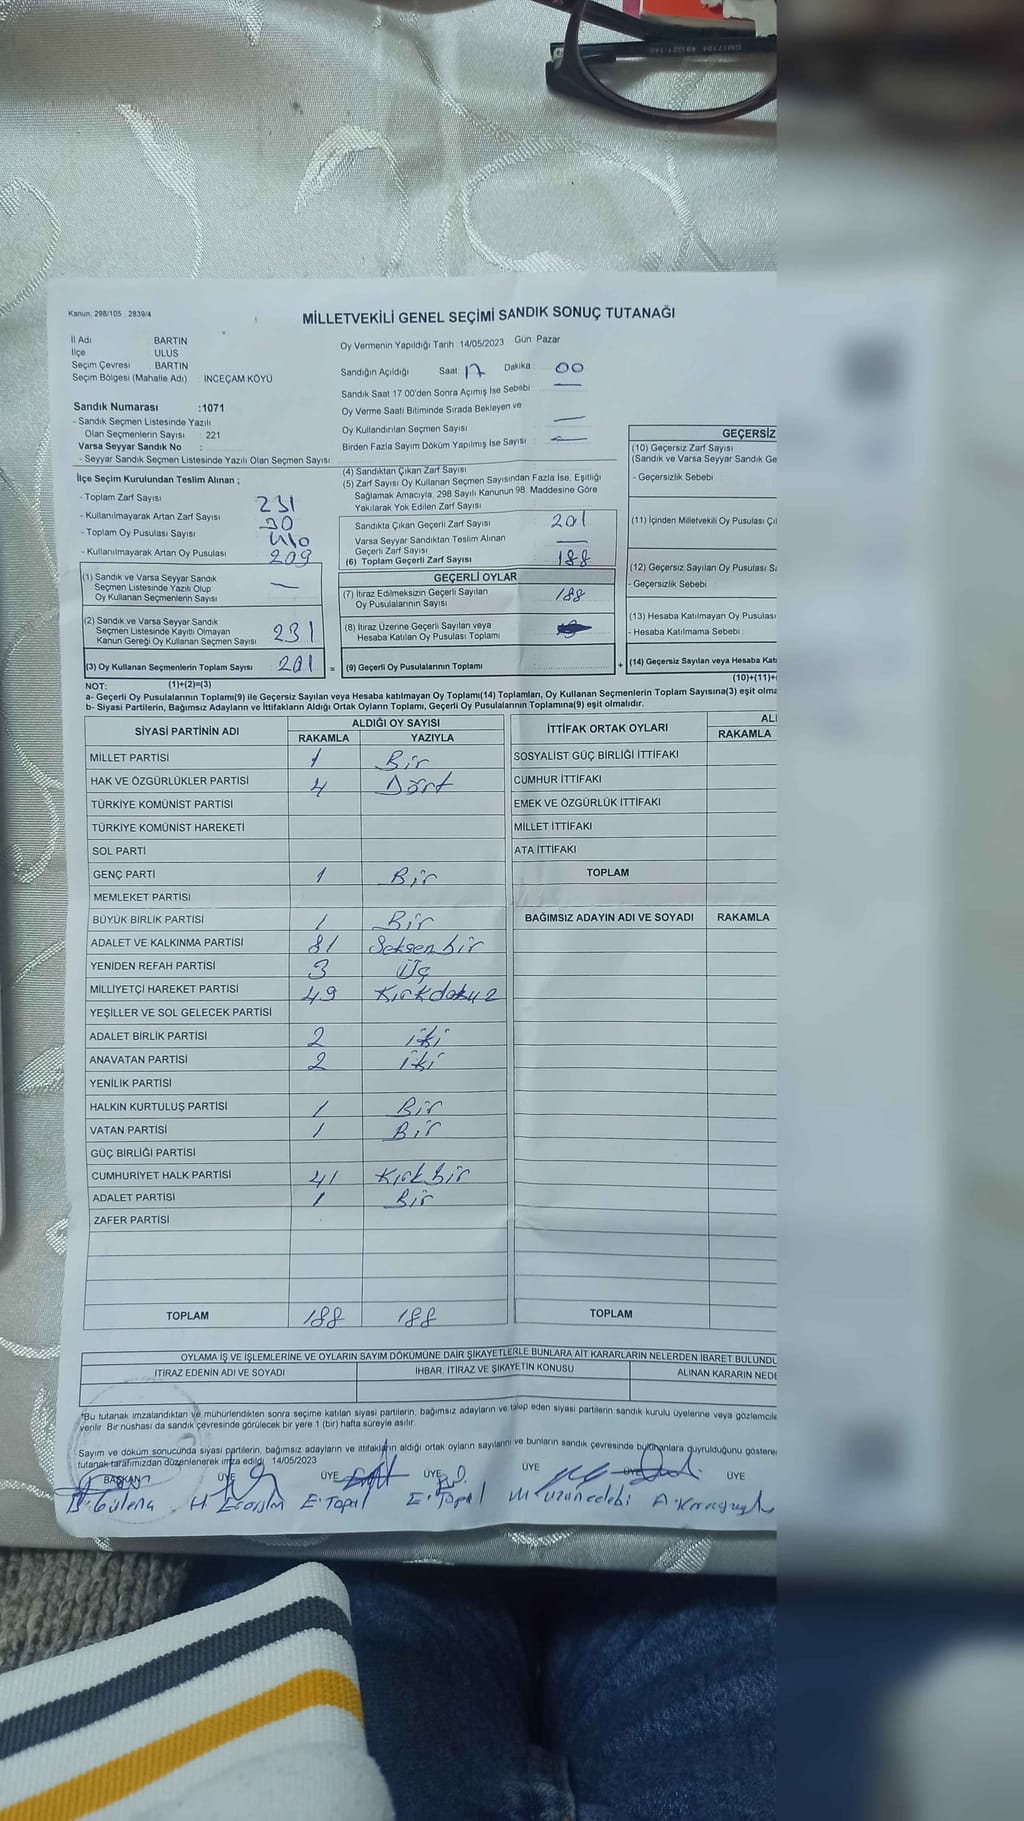 Kanun, 298/105 , 2839/4
MİLLETVEKİLİ GENEL SEÇİMİ SANDIK SONUÇ TUTANAĞI
İl Adı : BARTIN
İlçe : ULUS
Seçim Çevresi : BARTIN
Seçim Bölgesi (Mahalle Adı) : İNCEÇAM KÖYÜ
Sandık Numarası :1071
- Sandık Seçmen Listesinde Yazılı
Olan Seçmenlerin Sayısı : 221
Varsa Seyyar Sandık No :
- Seyyar Sandık Seçmen Listesinde Yazılı Olan Seçmen Sayısı
Oy Vermenin Yapıldığı Tarih :14/05/2023 Gün Pazar
Sandığın Açıldığı Saat 17 Dakika : 00
Sandık Saat 17:00'den Sonra Açımış İse Sebebi —
Oy Verme Saati Bitiminde Sırada Bekleyen ve
Oy Kullandırılan Seçmen Sayısı —
Birden Fazla Sayım Döküm Yapılmış İse Sayısı —
İlçe Seçim Kurulundan Teslim Alınan ;
- Toplam Zarf Sayısı 231
- Kullanılmayarak Artan Zarf Sayısı 30
- Toplam Oy Pusulası Sayısı 410
- Kullanılmayarak Artan Oy Pusulası 209
(1) Sandık ve Varsa Seyyar Sandık
Seçmen Listesinde Yazılı Olup
Oy Kullanan Seçmenlerin Sayısı —
(2) Sandık ve Varsa Seyyar Sandık
Seçmen Listesinde Kayıtlı Olmayan
Kanun Gereği Oy Kullanan Seçmen Sayısı 231
(3) Oy Kullanan Seçmenlerin Toplam Sayısı 201 =
(4) Sandıktan Çıkan Zarf Sayısı
(5) Zarf Sayısı Oy Kullanan Seçmen Sayısından Fazla İse, Eşitliği
Sağlamak Amacıyla, 298 Sayılı Kanunun 98. Maddesine Göre
Yakılarak Yok Edilen Zarf Sayısı
Sandıkta Çıkan Geçerli Zarf Sayısı 201
Varsa Seyyar Sandıktan Teslim Alınan
Geçerli Zarf Sayısı —
(6) Toplam Geçerli Zarf Sayısı 188
GEÇERLİ OYLAR
(7) İtiraz Edilmeksizin Geçerli Sayılan
Oy Pusulalarının Sayısı 188
(8) İtiraz Üzerine Geçerli Sayılan veya
Hesaba Katılan Oy Pusulası Toplamı
(9) Geçerli Oy Pusulalarının Toplamı +
GEÇERSİZ
(10) Geçersiz Zarf Sayısı
(Sandık ve Varsa Seyyar Sandık Ge
- Geçersizlik Sebebi
(11) İçinden Milletvekili Oy Pusulası Çı
(12) Geçersiz Sayılan Oy Pusulası Sa
- Geçersizlik Sebebi
(13) Hesaba Katılmayan Oy Pusulası
- Hesaba Katılmama Sebebi
(14) Geçersiz Sayılan veya Hesaba Kat
(10)+(11)+
NOT: (1)+(2)=(3)
a- Geçerli Oy Pusulalarının Toplamı(9) ile Geçersiz Sayılan veya Hesaba katılmayan Oy Toplamı(14) Toplamları, Oy Kullanan Seçmenlerin Toplam Sayısına(3) eşit olma
b- Siyasi Partilerin, Bağımsız Adayların ve İttifakların Aldığı Ortak Oyların Toplamı, Geçerli Oy Pusulalarının Toplamına(9) eşit olmalıdır.
SİYASİ PARTİNİN ADI ALDIĞI OY SAYISI
RAKAMLA YAZIYLA
MİLLET PARTİSİ 1 Bir
HAK VE ÖZGÜRLÜKLER PARTİSİ 4 Dört
TÜRKİYE KOMÜNİST PARTİSİ
TÜRKİYE KOMÜNİST HAREKETİ
SOL PARTİ
GENÇ PARTİ 1 Bir
MEMLEKET PARTİSİ
BÜYÜK BİRLİK PARTİSİ 1 Bir
ADALET VE KALKINMA PARTİSİ 81 Seksen bir
YENİDEN REFAH PARTİSİ 3 Üç
MİLLİYETÇİ HAREKET PARTİSİ 49 Kırkdokuz
YEŞİLLER VE SOL GELECEK PARTİSİ
ADALET BİRLİK PARTİSİ 2 iki
ANAVATAN PARTİSİ 2 iki
YENİLİK PARTİSİ
HALKIN KURTULUŞ PARTİSİ 1 Bir
VATAN PARTİSİ 1 Bir
GÜÇ BİRLİĞİ PARTİSİ
CUMHURİYET HALK PARTİSİ 41 Kırk bir
ADALET PARTİSİ 1 Bir
ZAFER PARTİSİ
TOPLAM 188 188
İTTİFAK ORTAK OYLARI AL
RAKAMLA
SOSYALİST GÜÇ BİRLİĞİ İTTİFAKI
CUMHUR İTTİFAKI
EMEK VE ÖZGÜRLÜK İTTİFAKI
MİLLET İTTİFAKI
ATA İTTİFAKI
TOPLAM
BAĞIMSIZ ADAYIN ADI VE SOYADI RAKAMLA
TOPLAM
OYLAMA İŞ VE İŞLEMLERİNE VE OYLARIN SAYIM DÖKÜMÜNE DAİR ŞİKAYETLERLE BUNLARA AİT KARARLARIN NELERDEN İBARET BULUNDU
İTİRAZ EDENİN ADI VE SOYADI İHBAR, İTİRAZ VE ŞİKAYETİN KONUSU ALINAN KARARIN NEDE
*Bu tutanak imzalandıktan ve mühürlendikten sonra seçime katılan siyasi partilerin, bağımsız adayların ve talep eden siyasi partilerin sandık kurulu üyelerine veya gözlemcile
verilir. Bir nüshası da sandık çevresinde görülecek bir yere 1 (bir) hafta süreyle asılır.
Sayım ve döküm sonucunda siyasi partilerin, bağımsız adayların ve ittifakların aldığı ortak oyların sayılarını ve bunların sandık çevresinde bulunanlara duyrulduğunu göstere
tutanak tarafımızdan düzenlenerek imza edildi. 14/05/2023
BAŞKAN ÜYE ÜYE ÜYE ÜYE ÜYE ÜYE
E. Topal E. Topal